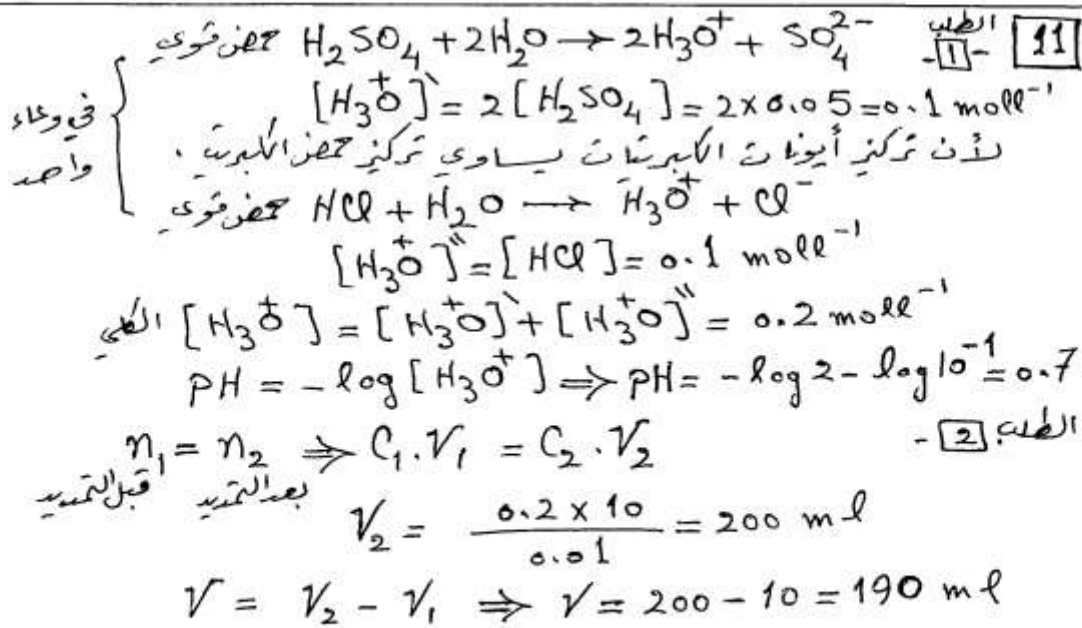 11 الطلب -1-
H₂SO₄ + 2H₂O → 2H₃O⁺ + SO₄²⁻ حمض قوي
[H₃O⁺]' = 2[H₂SO₄] = 2×0.05 = 0.1 moll⁻¹
في وعاء واحد
لأن تركيز أيونات الكبريتات يساوي تركيز حمض الكبريت .
HCl + H₂O → H₃O⁺ + Cl⁻ حمض قوي
[H₃O⁺]" = [HCl] = 0.1 moll⁻¹
الكلي [H₃O⁺] = [H₃O⁺]' + [H₃O⁺]" = 0.2 moll⁻¹
PH = -log[H₃O⁺] ⇒ PH = -log2 - log10⁻¹ = 0.7
الطلب 2 -
n₁ = n₂ ⇒ C₁.V₁ = C₂.V₂
قبل التمديد بعد التمديد
V₂ = 0.2 x 10 / 0.01 = 200 ml
V = V₂ - V₁ ⇒ V = 200 - 10 = 190 ml